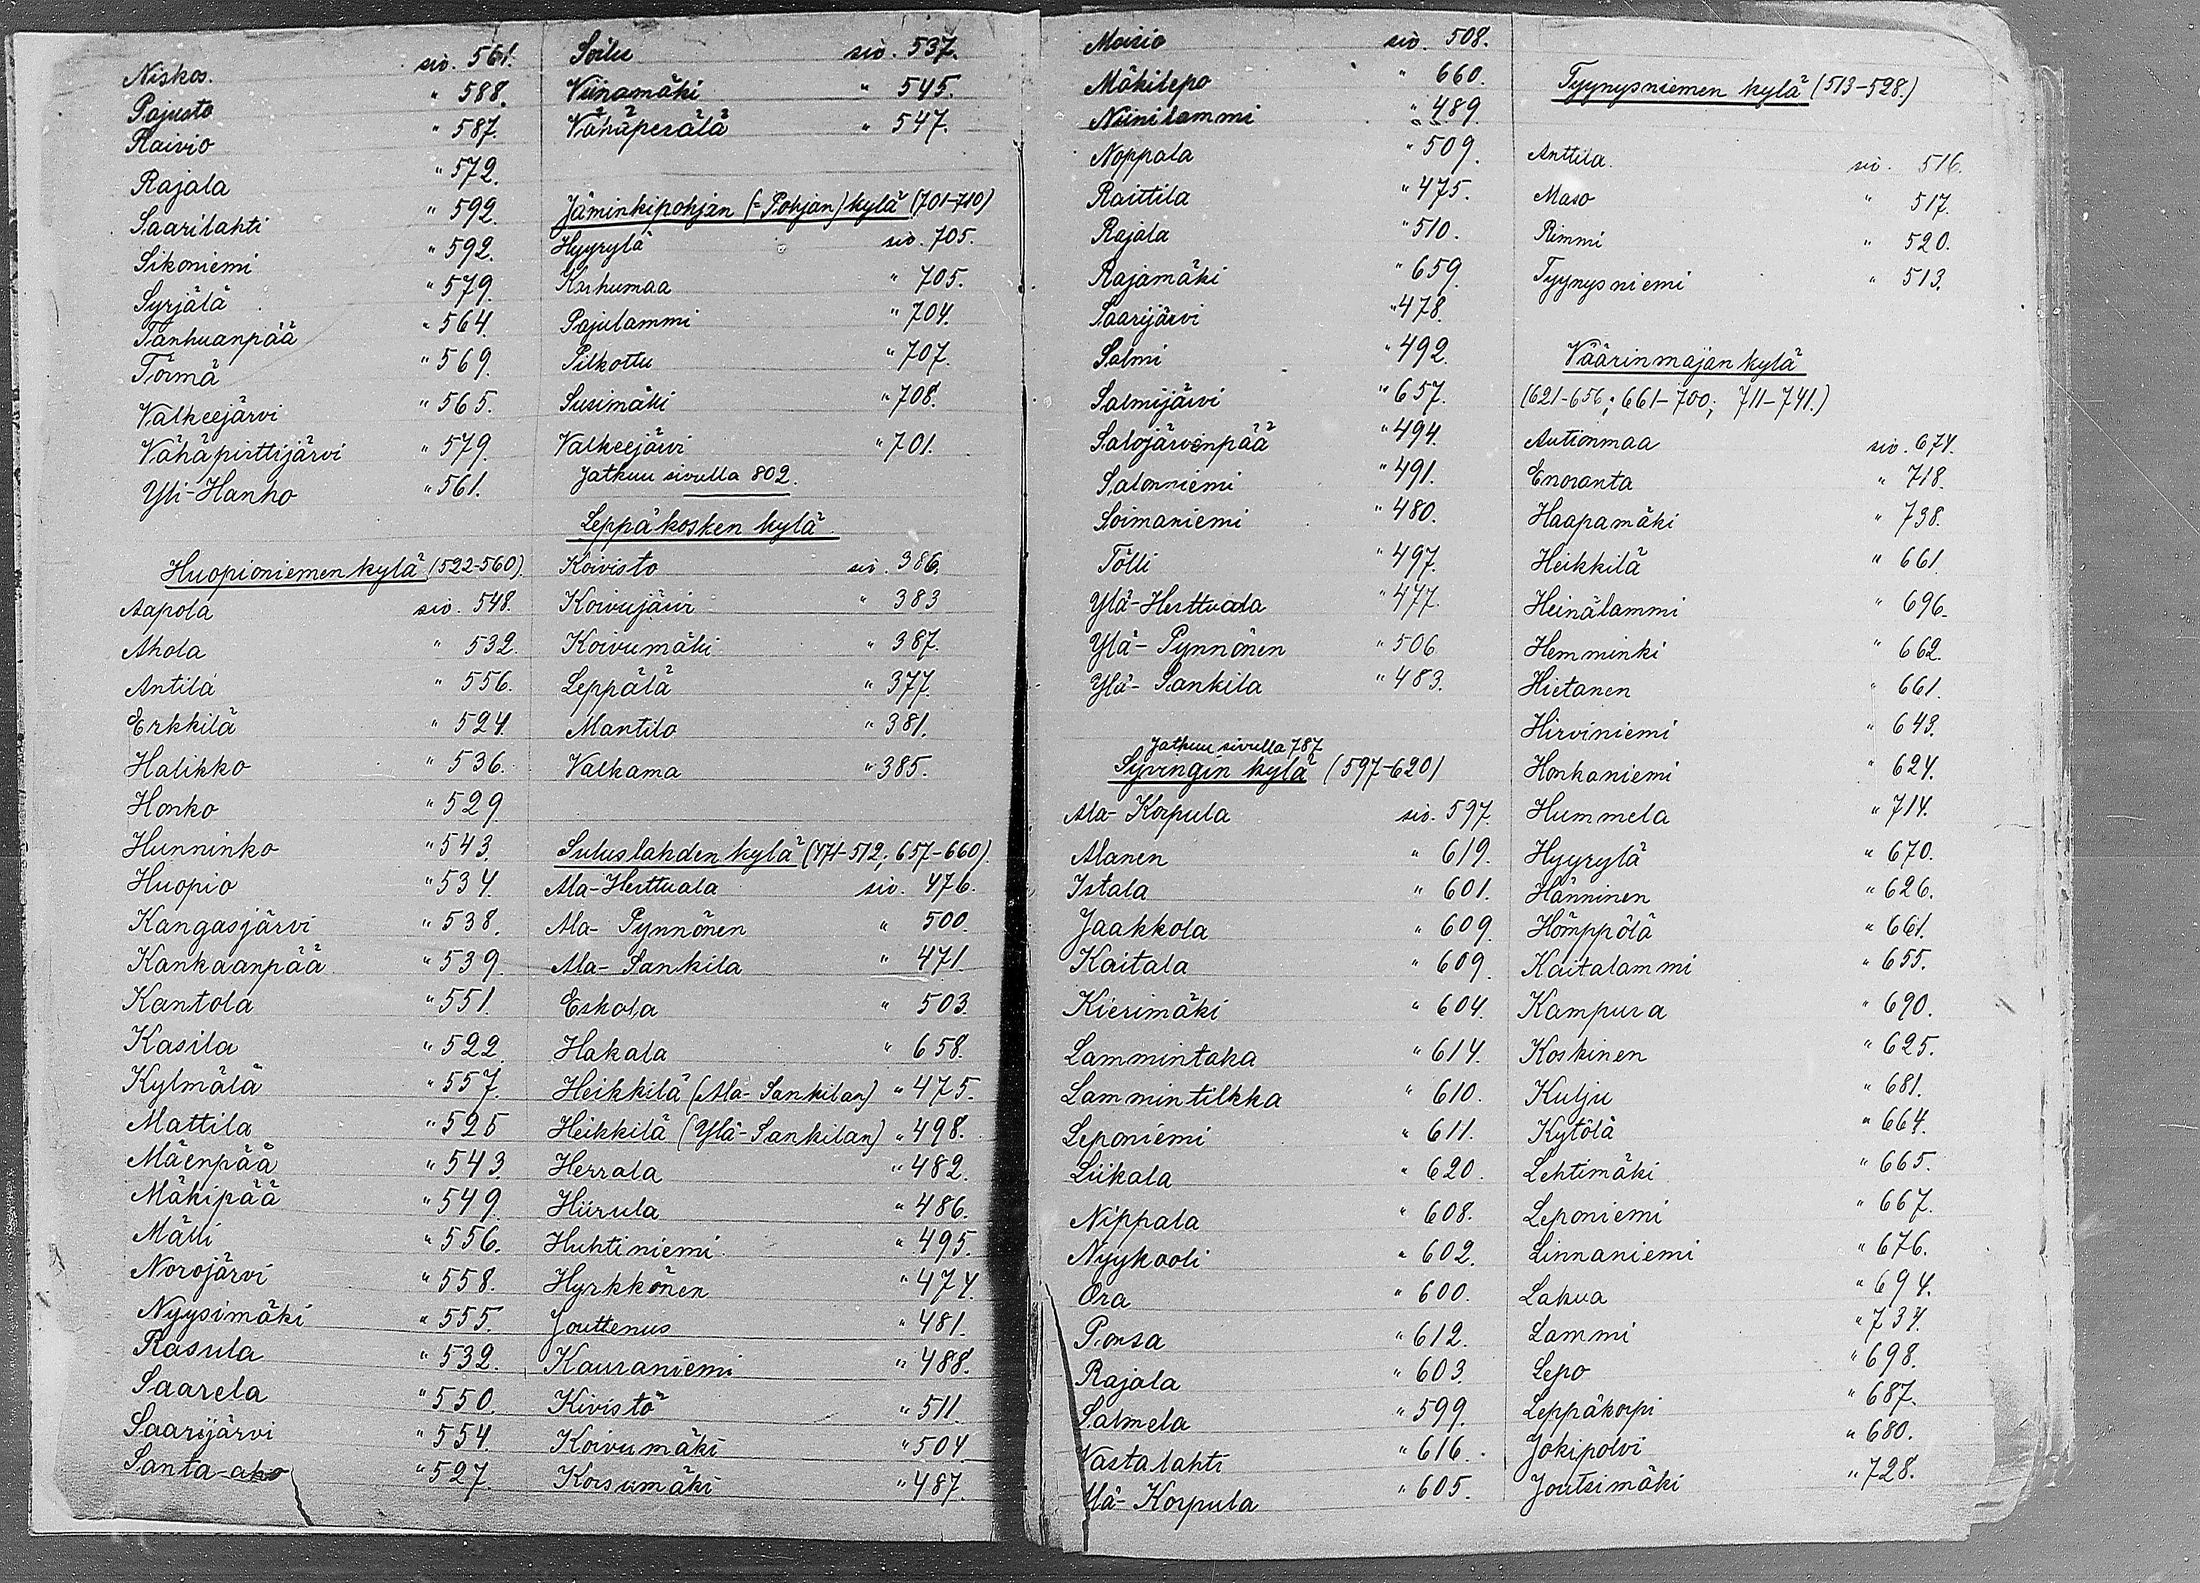 Niskos. siv. 561.
Pajusto " 588.
Raivio " 587.
Rajala " 572.
Saarilahti " 592.
Sikoniemi " 592.
Syrjälä " 579.
Tanhuanpää " 564.
Törmä " 569.
Valkeejärvi " 565.
Vähäpirttijärvi " 579.
Yli-Hanho " 561.
Huopioniemen kylä (522-560).
Aapola siv. 548.
Ahola " 532.
Antila " 556.
Erkkilä " 524.
Halikko " 536.
Honko " 529
Hunninko " 543.
Huopio " 534.
Kangasjärvi " 538.
Kankaanpää " 539.
Kantola " 551.
Kasila " 522.
Kylmälä " 557.
Mattila " 525
Mäenpää " 543.
Mäkipää " 549.
Mälli " 556.
Norojärvi " 558.
Nyysimäki " 555.
Rasula " 532.
Saarela " 550.
Saarijärvi " 554.
Santa-aho " 527.
Soilu siv. 537.
Viinamäki " 545.
Vähäperälä " 547.
Jäminkipohjan (=Pohjan) kylä (701-710)
Hyyrylä siv. 705.
Karhumaa " 705.
Pajulammi " 704.
Pilkottu " 707.
Susimäki " 708.
Valkeejärvi " 701.
Jatkuu sivulla 802.
Leppäkosken kylä.
Koivisto siv. 386.
Koivujärvi " 383
Koivumäki " 387.
Leppälä " 377.
Mantila " 381.
Valkama " 385.
Suluslahden kylä (471-512; 657-660).
Ala-Herttuala siv. 476.
Ala-Pynnönen " 500.
Ala-Sankila " 471
Eskola " 503.
Hakala " 658.
Heikkilä (Ala-Sankilan) " 475.
Heikkilä (Ylä-Sankilan) " 498.
Herrala " 482.
Hiirula " 486.
Huhtiniemi " 495.
Hyrkkönen " 474.
Jouttenus " 481.
Kauraniemi " 488.
Kivistö " 511.
Koivumäki " 504
Korsumäki " 487.
Moisio siv. 508.
Mäkilepo " 660.
Niinilammi " 489.
Noppala " 509.
Raittila " 475.
Rajala " 510.
Rajamäki " 659.
Saarijärvi " 478.
Salmi " 492.
Salmijärvi " 657.
Salojärvenpää " 494.
Salonniemi " 491.
Soimaniemi " 480.
Tölli " 497.
Ylä-Herttuala " 477.
Ylä-Pynnönen " 506
Ylä-Sankila " 483.
Jatkuu sivulla 787
Syvingin kylä (597-620)
Ala-Korpula siv. 597.
Alanen " 619.
Istala " 601.
Jaakkola " 609.
Kaitala " 609.
Kierimäki " 604.
Lammintaka " 614.
Lammintilkka " 610.
Leponiemi " 611.
Liikala " 620.
Nippala " 608.
Nyykooli " 602.
Ora " 600.
Ponsa " 612.
Rajala " 603.
Salmela " 599.
Vastalahti " 616.
Ylä-Korpula " 605.
Tyynysniemen kylä (513-528.)
Anttila. siv. 516.
Maso " 517.
Rimmi " 520.
Tyynysniemi " 513.
Väärinmajan kylä
(621-656; 661-700; 711-741.)
Autionmaa siv. 674.
Enoranta " 718.
Haapamäki " 738.
Heikkilä " 661.
Heinälammi " 696.
Hemminki " 662.
Hietanen " 661.
Hirviniemi " 643.
Honkaniemi " 624.
Hummela " 714.
Hyyrylä " 670.
Hänninen " 626.
Hömppölä " 661.
Kaitalammi " 655.
Kampura " 690.
Koskinen " 625.
Kulju " 681.
Kytölä " 664.
Lehtimäki " 665.
Leponiemi " 667.
Linnaniemi " 676.
Lakua " 694.
Lammi " 734.
Lepo " 698.
Leppäkorpi " 687.
Jokipolvi " 680.
Joutsimäki " 728.